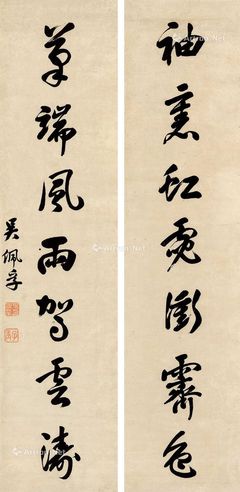 袖裏虹霓衝霽色
筆端風雨駕雲濤
吳佩孚